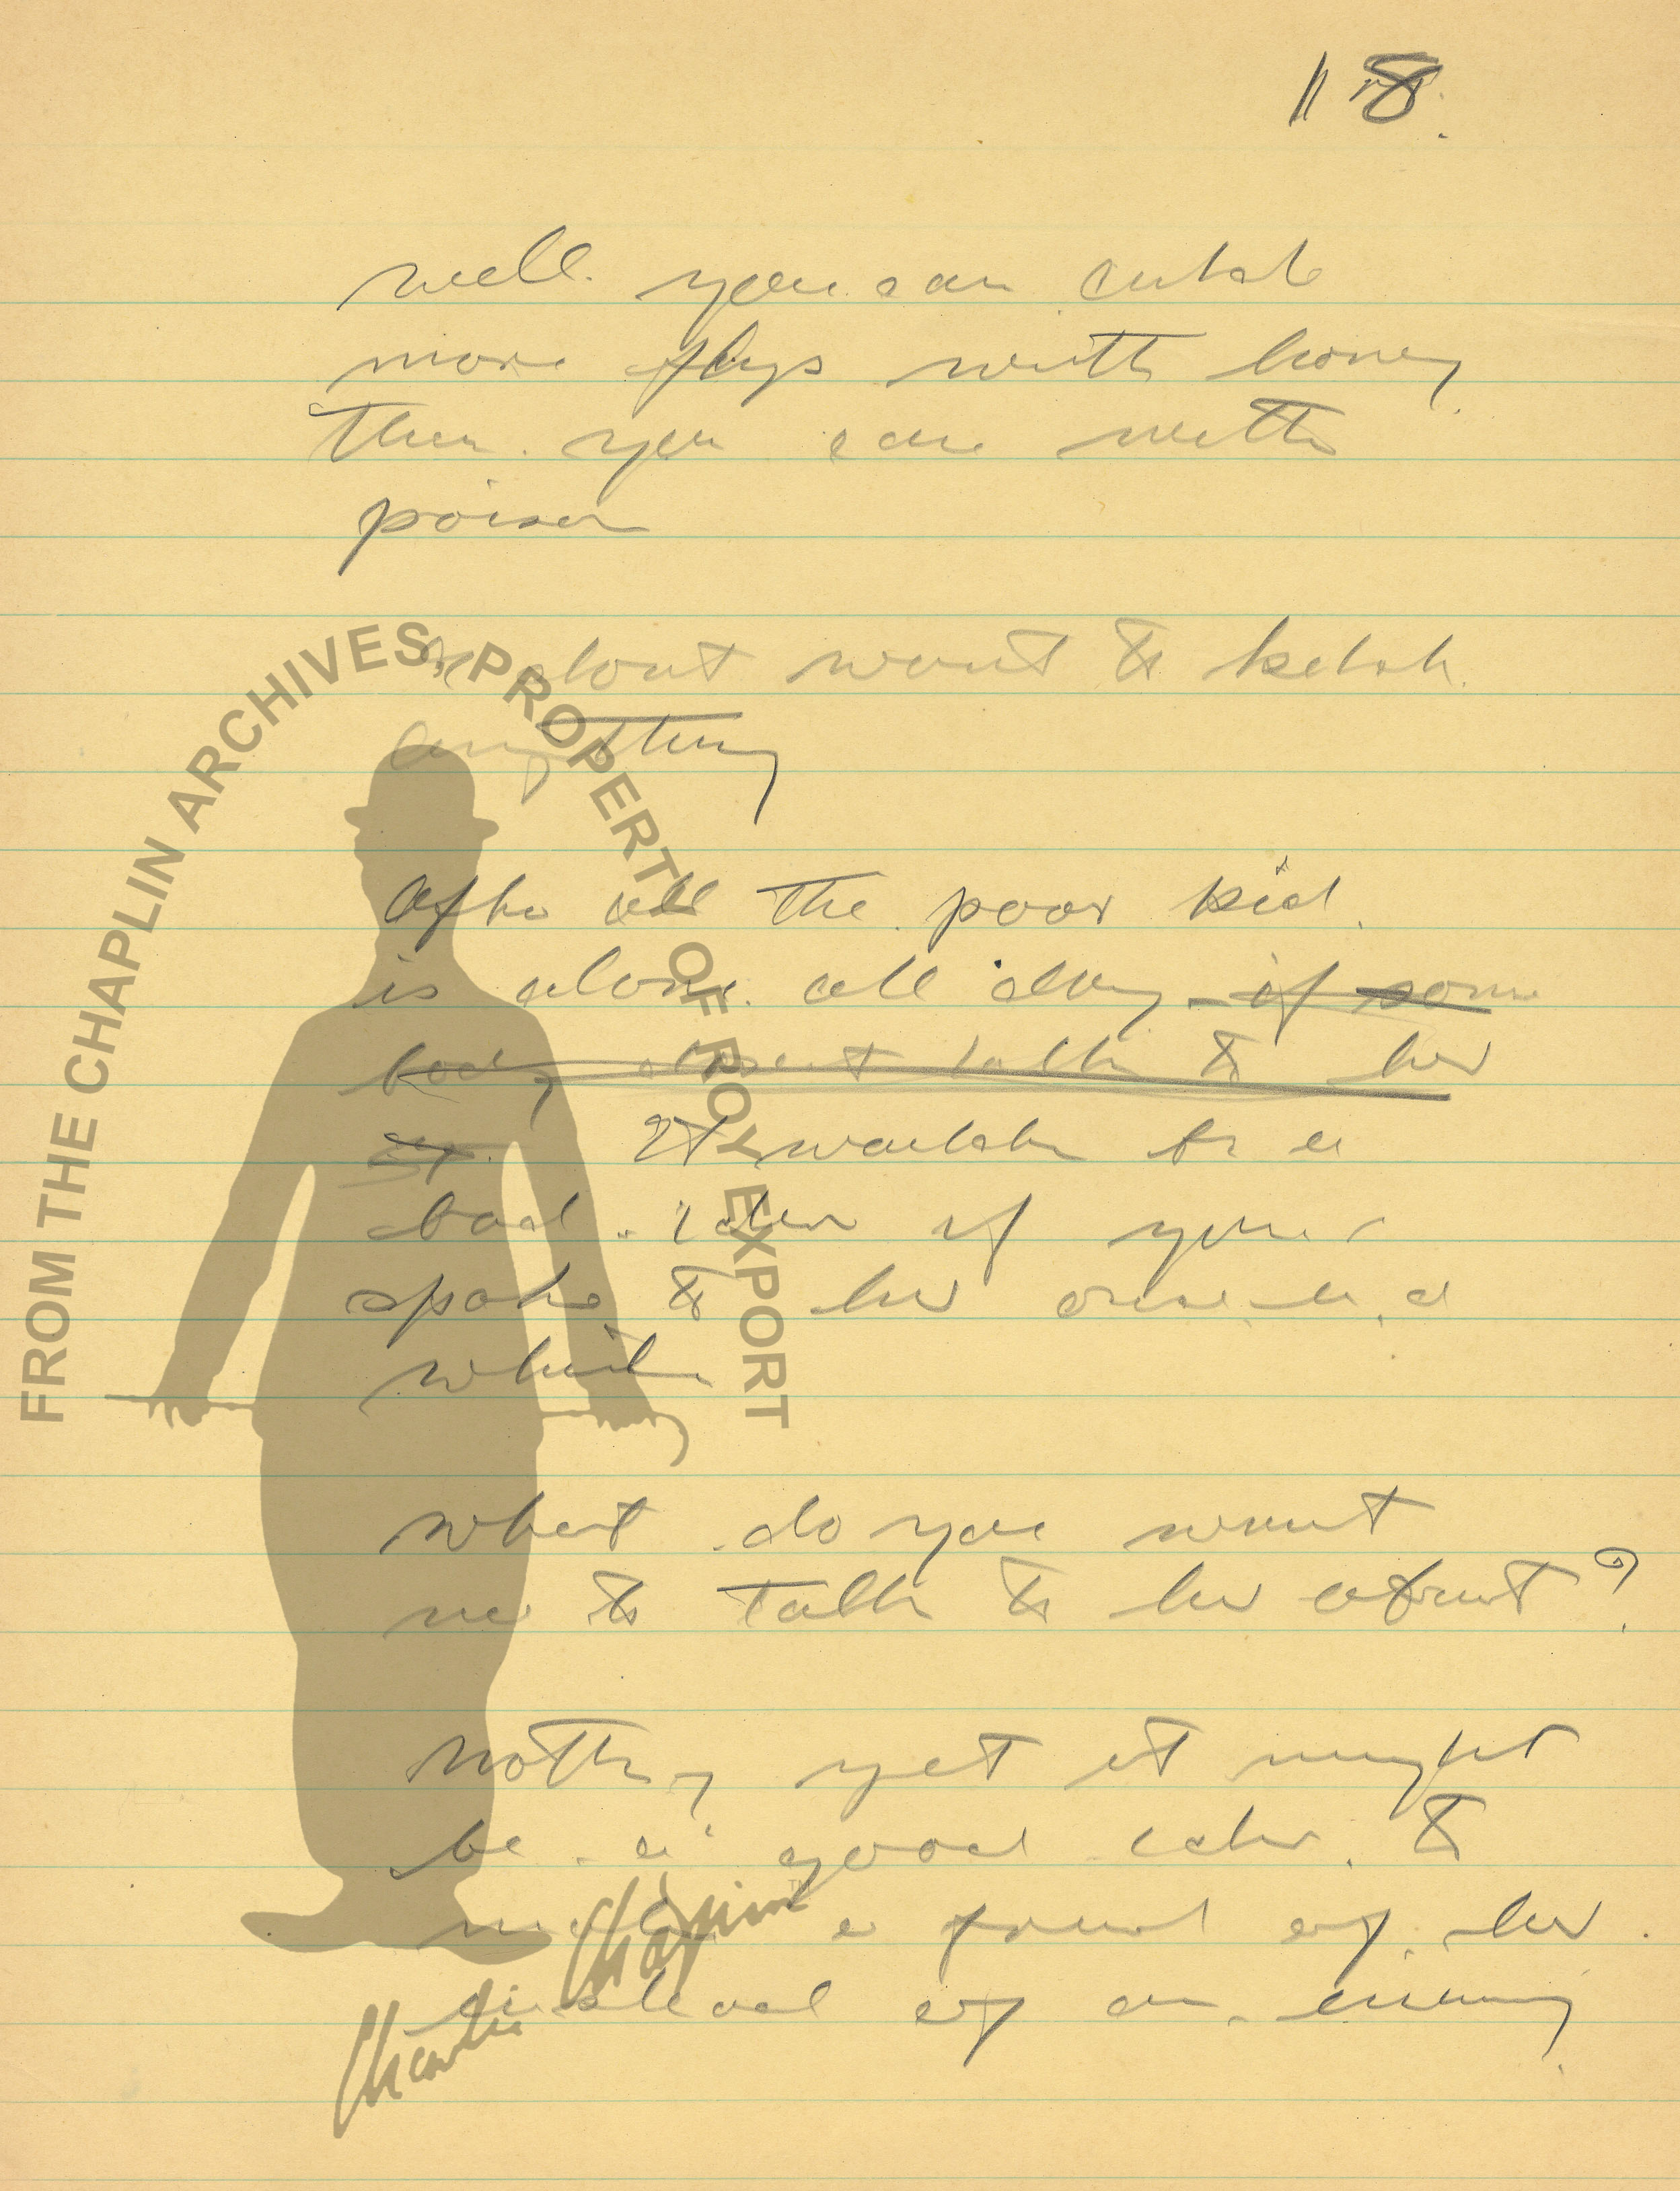 118.
well. you can catch
more flys with honey
then you can with
poison
I dont want to ketch
anything
After all the poor kid
is alone all day if some
body doesent talk to her
It wouldn be a
bad idea if you
spoke to her once in a
while
what do you want
me to talk to her about?
nothing yet it might
be a good idea to
make a friend of her
instead of an enimy
FROM THE CHAPLIN ARCHIVES. PROPERTY OF ROY EXPORT
Charlie Chaplin™